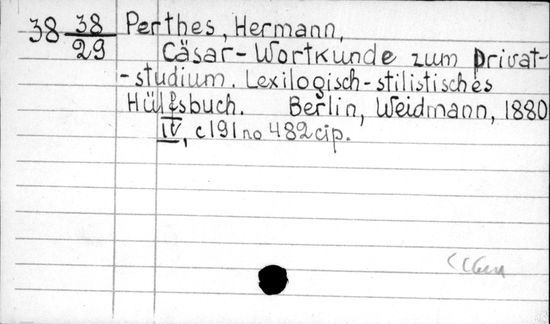 38 38/29 Perthes, Hermann,
Cäsar-Wortkunde zum Privat-
-studium. Lexilogisch-stilistisches
Hülfsbuch. Berlin, Weidmann, 1880
IV, c191 no 482 cip.